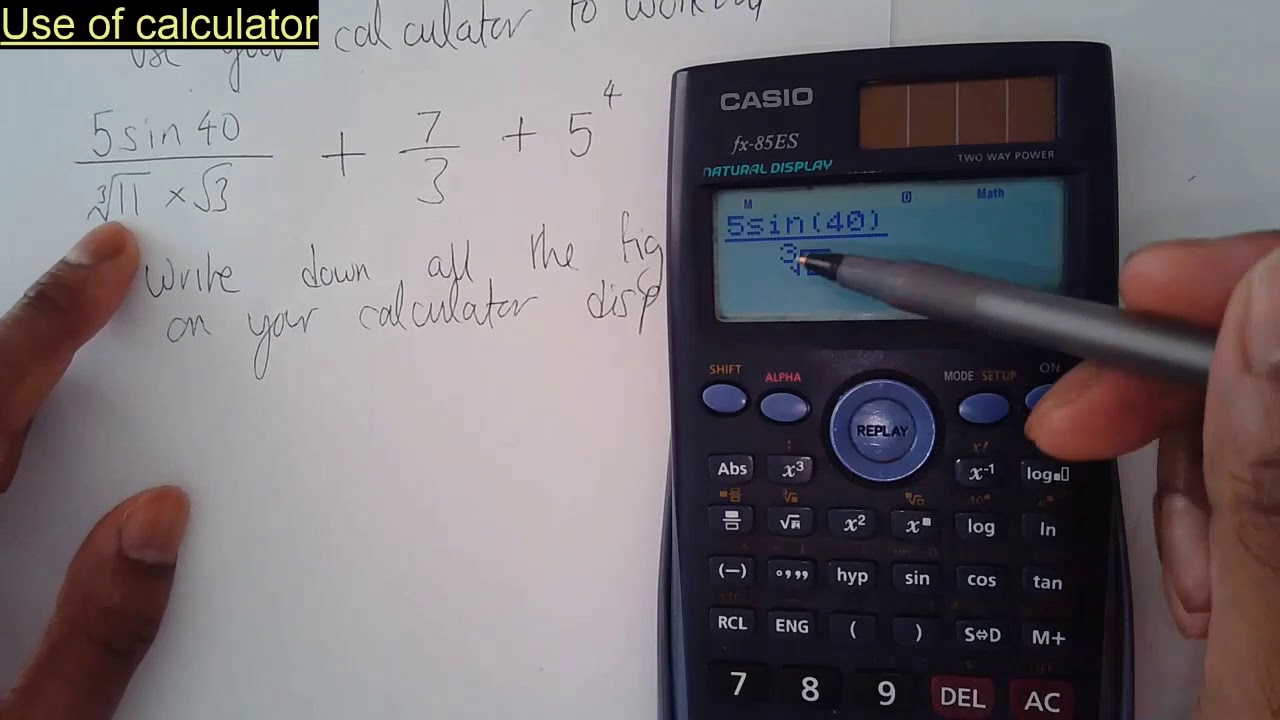 Use of calculator
use your calculator to working
5sin40 / ∛11 × √3 + 7/3 + 5⁴
Write down all the fig
on your calculator disp
CASIO
fx-85ES
NATURAL DISPLAY
TWO WAY POWER
M D Math
5sin(40)
3√
SHIFT ALPHA MODE SETUP ON
REPLAY
x!
Abs x³ x⁻¹ log
√ x² x log ln
(—) °,,, hyp sin cos tan
RCL ENG ( ) S⇔D M+
7 8 9 DEL AC